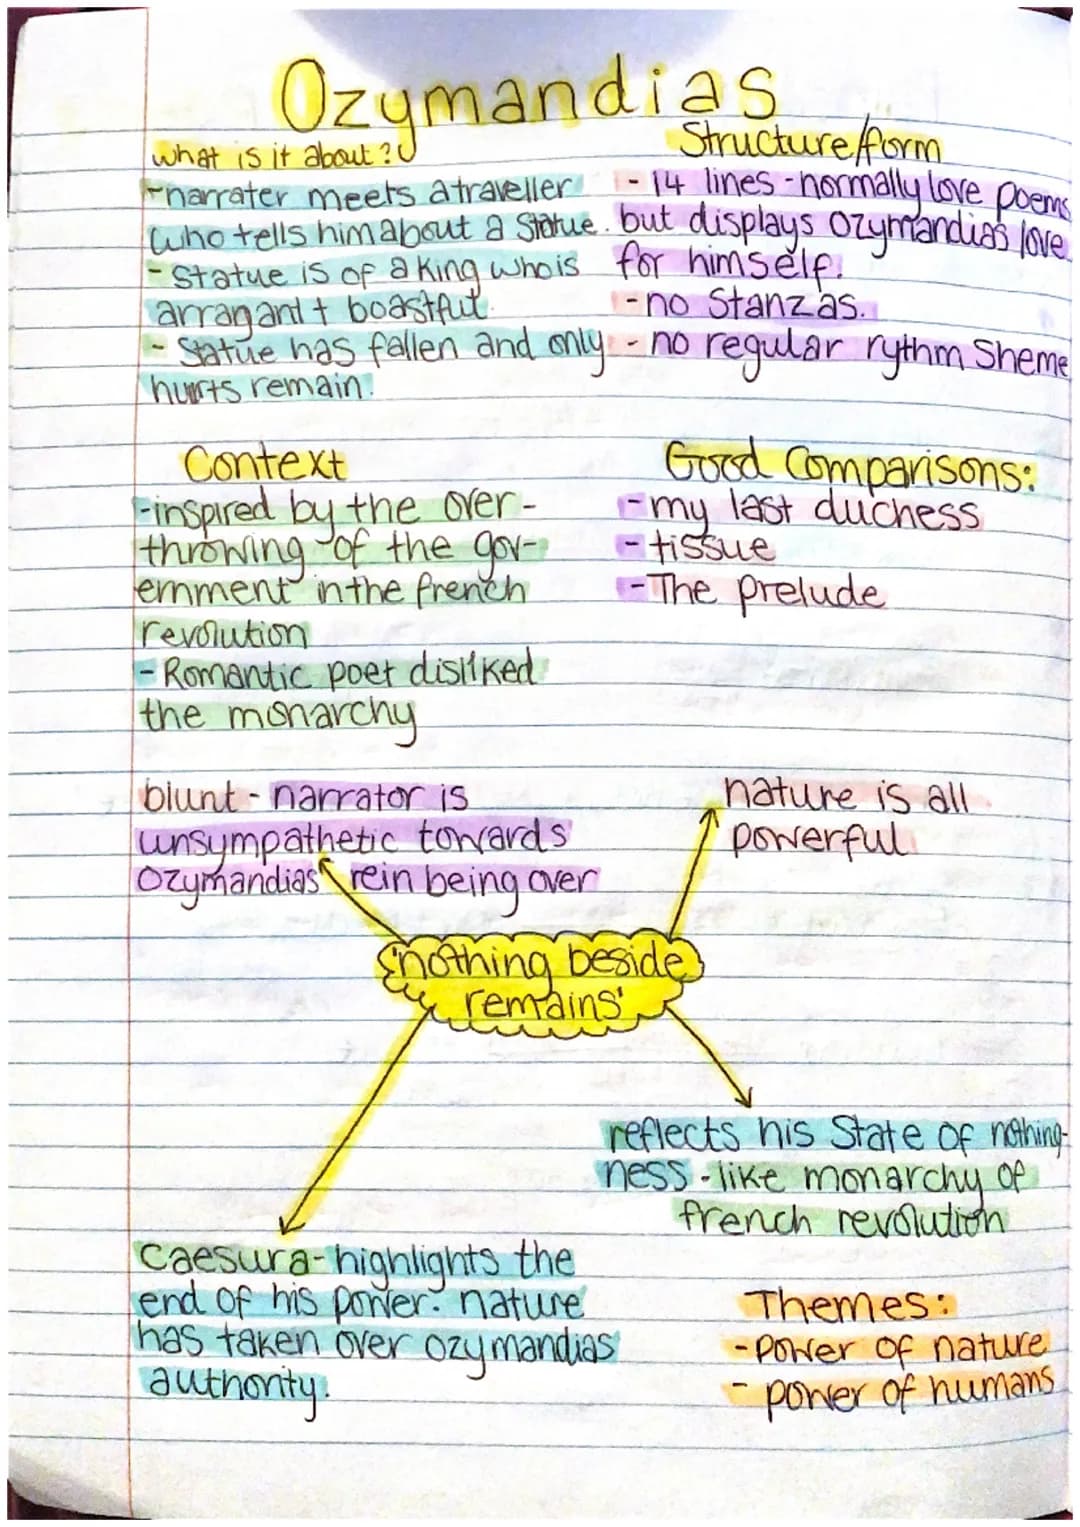 Ozymandias
what is it about?
-narrater meets a traveller
who tells him about a statue.
- Statue is of a king who is
arragant + boastful.
- Statue has fallen and only
remain.
Structure/form
- 14 lines - normally love poems
but displays Ozymandias love
for himself.
- no Stanzas.
- no regular rythm Sheme
Context
-inspired by the over-
throwing of the gov-
ernment in the french
revolution
- Romantic poet disliked
the monarchy
Good Comparisons:
- my last duchess
- tissue
- The prelude
blunt - narrator is
unsympathetic towards
Ozymandias' rein being over
nature is all
powerful
'nothing beside
remains'
reflects his State of nothing-
ness - like monarchy of
french revolution
Caesura - highlights the
end of his power. nature
has taken over ozymandias
authority.
Themes:
- power of nature
- power of humans